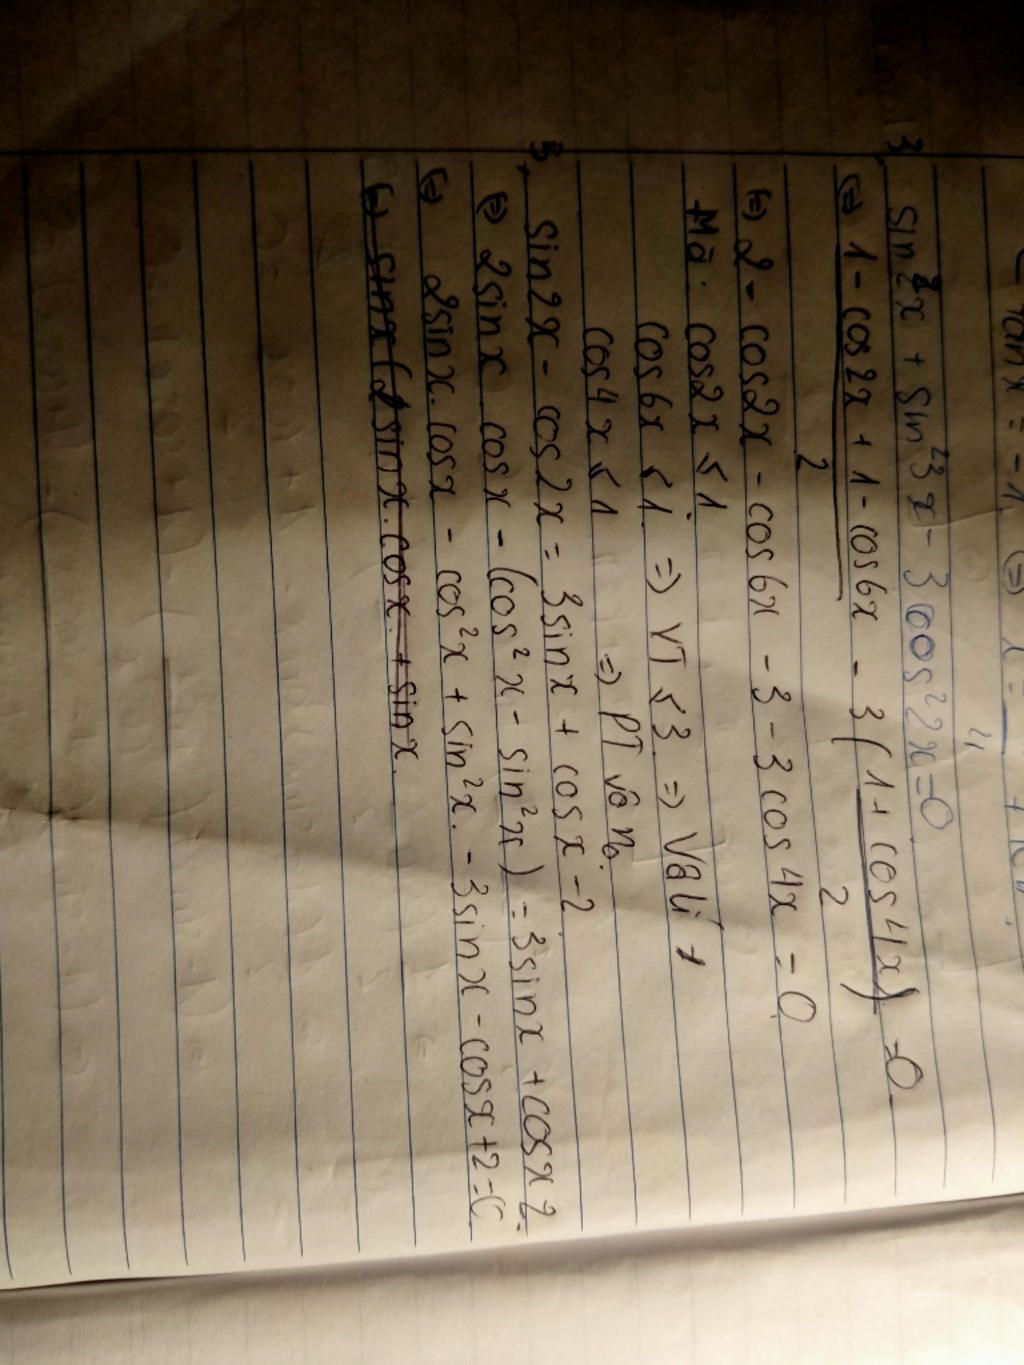 tan x = -1 (=) x =
3, sin²x + sin²3x - 3cos²2x = 0
(=) 1 - cos2x + 1 - cos6x - 3(1 + cos4x) = 0
2 2
(=) 2 - cos2x - cos6x - 3 - 3cos4x = 0
Mà: cos2x ≤ 1
cos6x ≤ 1 => VT ≤ 3 => Vô lí
cos4x ≤ 1 => PT vô no
5, sin2x - cos2x = 3sinx + cosx - 2
(=) 2sinx cosx - (cos²x - sin²x) = 3sinx + cosx 2.
(=) 2sinx.cosx - cos²x + sin²x - 3sinx - cosx + 2 = 0
(=) sinx(2sinx.cosx. + sinx.